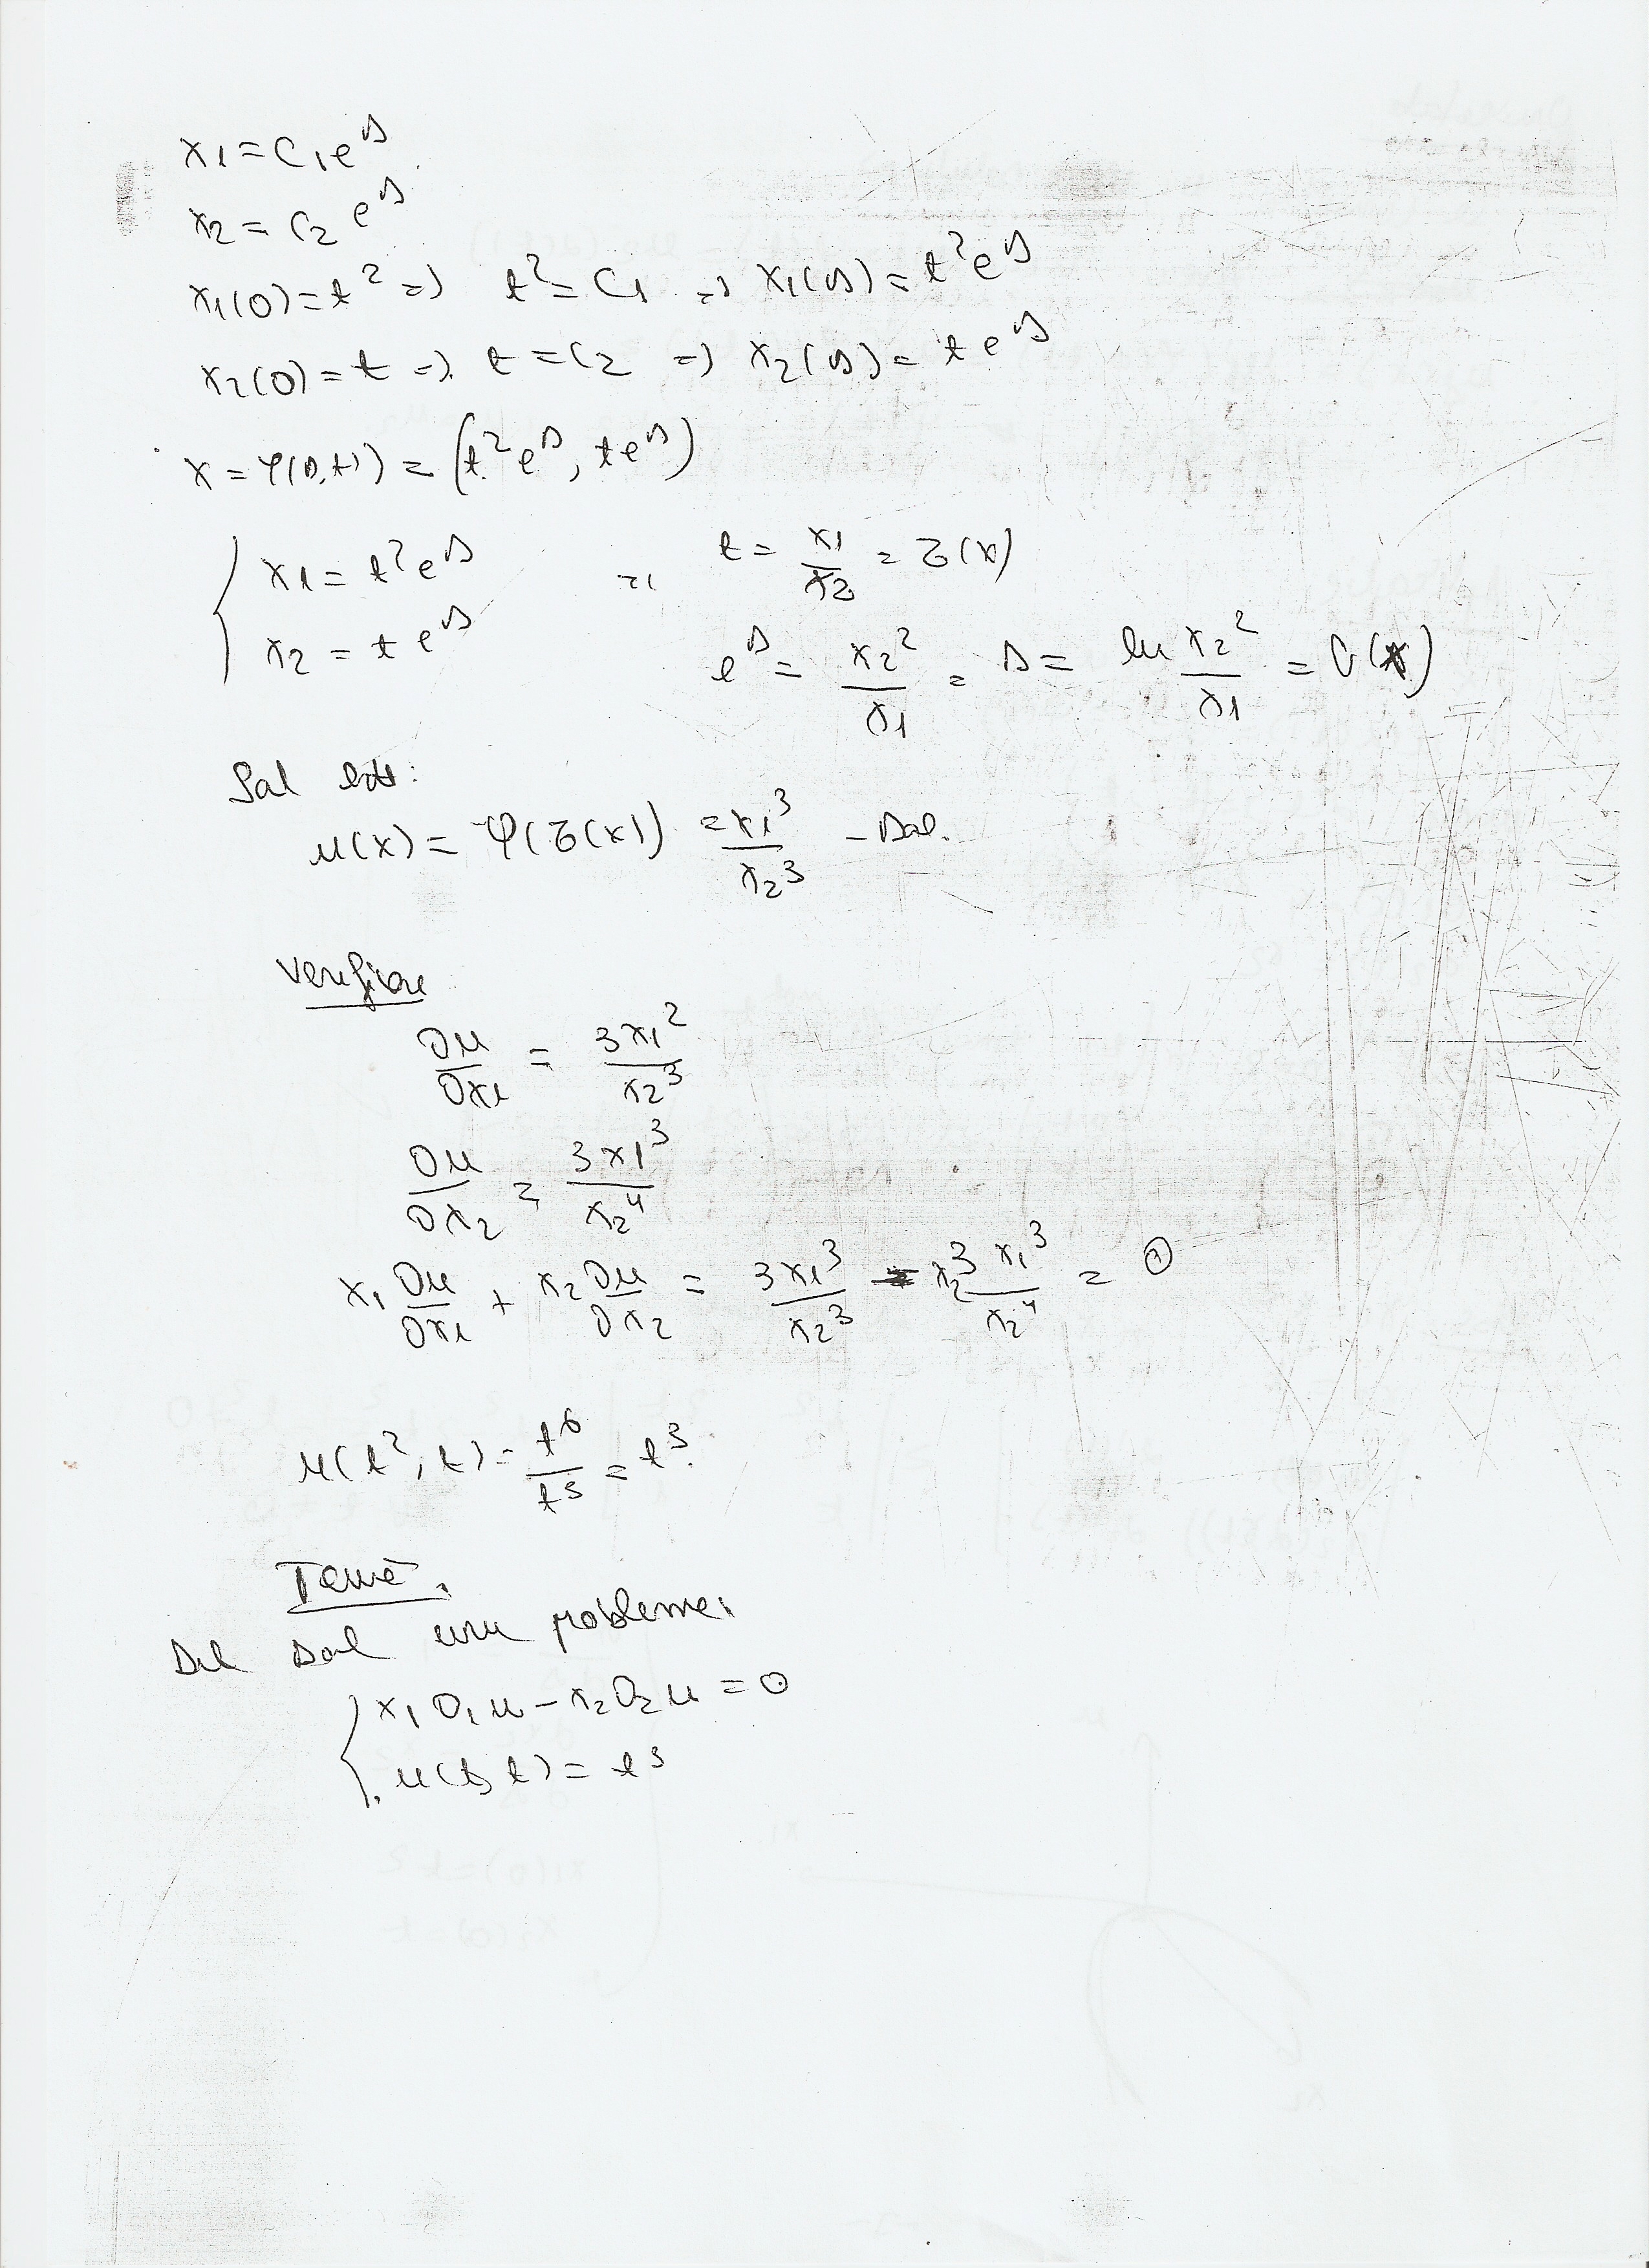 x1 = C1 e^s
x2 = C2 e^s
x1(0) = t^2 => t^2 = C1 => x1(s) = t^2 e^s
x2(0) = t => t = C2 => x2(s) = t e^s
x = φ(s,t) = (t^2 e^s, t e^s)
{ x1 = t^2 e^s => t = x1/x2 = τ(x)
x2 = t e^s e^s = x2^2/x1 = s = ln x2^2/x1 = σ(x)
Sol este:
u(x) = φ(τ(x)) = x1^3/x2^3 - sol.
Verificare
∂u/∂x1 = 3x1^2/x2^3
∂u/∂x2 = 3x1^3/x2^4
x1 ∂u/∂x1 + x2 ∂u/∂x2 = 3x1^3/x2^3 - x2 3x1^3/x2^4 = 0
u(t^2, t) = t^6/t^3 = t^3.
Temă.
Det sol unei probleme.
{ x1 D1 u - x2 D2 u = 0
u(t, t) = t^3